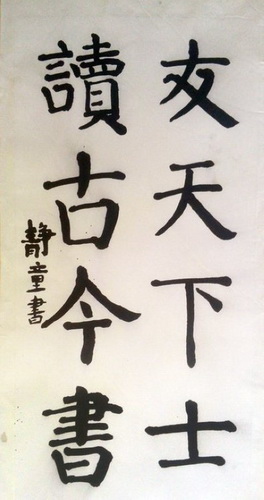 友天下士
讀古今書
靜童書